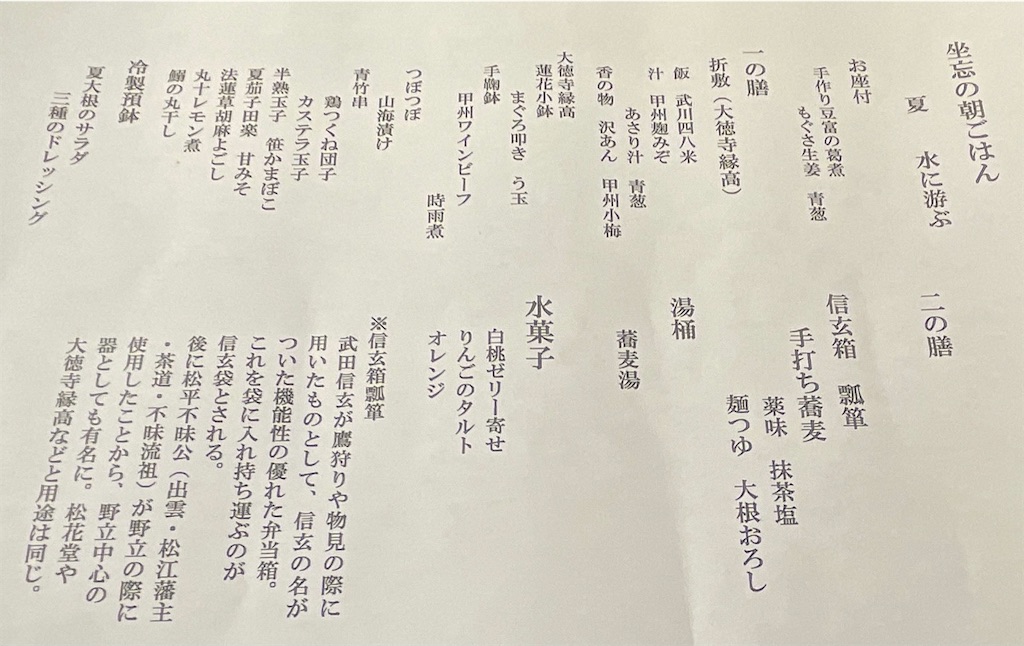 坐忘の朝ごはん
夏 水に游ぶ
お座付
手作り豆富の葛煮
もぐさ生姜 青葱
一の膳
折敷（大徳寺縁高）
飯 武川四八米
汁 甲州麹みぞ
あさり汁 青葱
香の物 沢あん 甲州小梅
大徳寺縁高
蓮花小鉢
まぐろ叩き う玉
手鞠鉢
甲州ワインビーフ
時雨煮
つぼつぼ
山海漬け
青竹串
鶏つくね団子
カステラ玉子
半熟玉子 笹かまぼこ
夏茄子田楽 甘みそ
法蓮草胡麻よごし
丸十レモン煮
鰯の丸干し
冷製預鉢
夏大根のサラダ
三種のドレッシング
二の膳
信玄箱 瓢箪
手打ち蕎麦
薬味 抹茶塩
麺つゆ 大根おろし
湯桶
蕎麦湯
水菓子
白桃ゼリー寄せ
りんごのタルト
オレンジ
※信玄箱瓢箪
武田信玄が鷹狩りや物見の際に
用いたものとして、信玄の名が
ついた機能性の優れた弁当箱。
これを袋に入れ持ち運ぶのが
信玄袋とされる。
後に松平不昧公（出雲・松江藩主
・茶道・不昧流祖）が野立の際に
使用したことから、野立中心の
器としても有名に。松花堂や
大徳寺縁高などと用途は同じ。